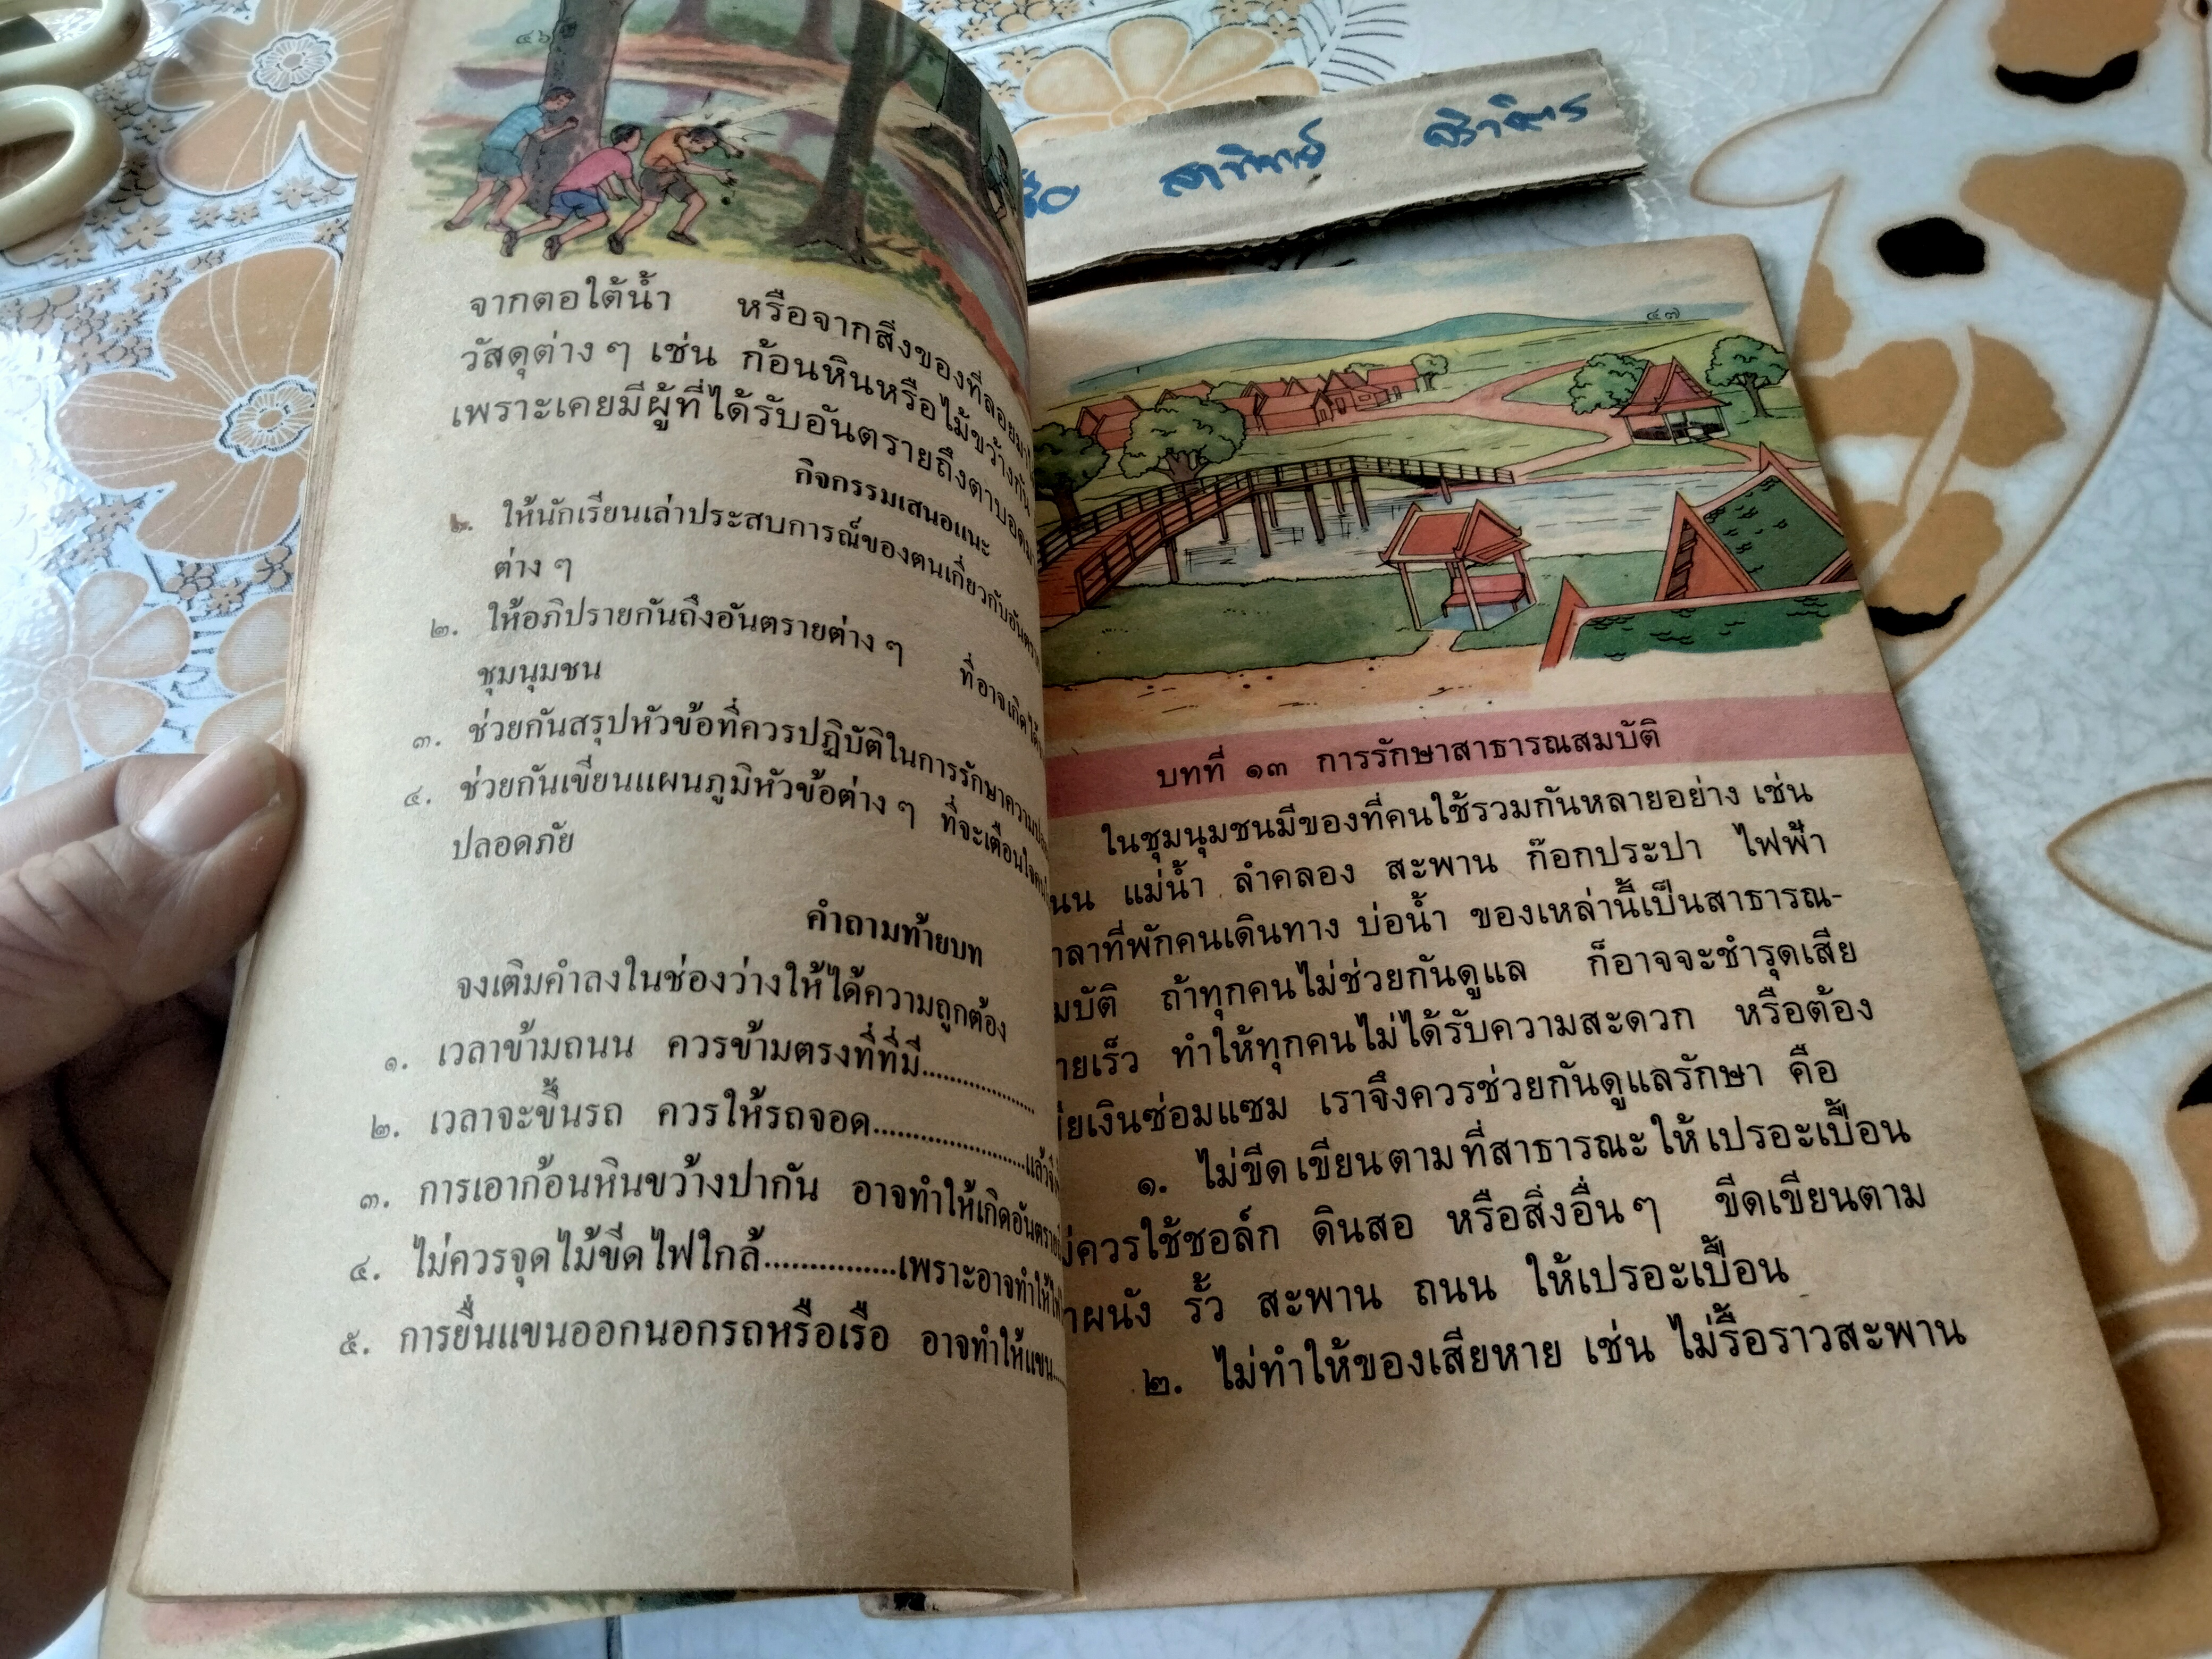 ๔๖
จากตอใต้น้ำ หรือจากสิ่งของที่ลอยมา
วัสดุต่าง ๆ เช่น ก้อนหินหรือไม้ขว้างกัน
เพราะเคยมีผู้ที่ได้รับอันตรายถึงตาบอด
กิจกรรมเสนอแนะ
๑. ให้นักเรียนเล่าประสบการณ์ของตนเกี่ยวกับอันตราย
ต่าง ๆ
๒. ให้อภิปรายกันถึงอันตรายต่าง ๆ ที่อาจเกิดได้
ชุมนุมชน
๓. ช่วยกันสรุปหัวข้อที่ควรปฏิบัติในการรักษาความ
๔. ช่วยกันเขียนแผนภูมิหัวข้อต่าง ๆ ที่จะเตือนใจ
ปลอดภัย
คำถามท้ายบท
จงเติมคำลงในช่องว่างให้ได้ความถูกต้อง
๑. เวลาข้ามถนน ควรข้ามตรงที่ที่มี...................
๒. เวลาจะขึ้นรถ ควรให้รถจอด.......................แล้วจึง
๓. การเอาก้อนหินขว้างปากัน อาจทำให้เกิดอันตราย
๔. ไม่ควรจุดไม้ขีดไฟใกล้................เพราะอาจทำให้
๕. การยื่นแขนออกนอกรถหรือเรือ อาจทำให้แขน....
สาทิตย์
๔๗
บทที่ ๑๓ การรักษาสาธารณสมบัติ
ในชุมนุมชนมีของที่คนใช้รวมกันหลายอย่าง เช่น
นน แม่น้ำ ลำคลอง สะพาน ก๊อกประปา ไฟฟ้า
าลาที่พักคนเดินทาง บ่อน้ำ ของเหล่านี้เป็นสาธารณ-
มบัติ ถ้าทุกคนไม่ช่วยกันดูแล ก็อาจจะชำรุดเสีย
ายเร็ว ทำให้ทุกคนไม่ได้รับความสะดวก หรือต้อง
ียเงินซ่อมแซม เราจึงควรช่วยกันดูแลรักษา คือ
๑. ไม่ขีดเขียนตามที่สาธารณะให้เปรอะเปื้อน
ม่ควรใช้ชอล์ก ดินสอ หรือสิ่งอื่นๆ ขีดเขียนตาม
าผนัง รั้ว สะพาน ถนน ให้เปรอะเปื้อน
๒. ไม่ทำให้ของเสียหาย เช่น ไม่รื้อราวสะพาน